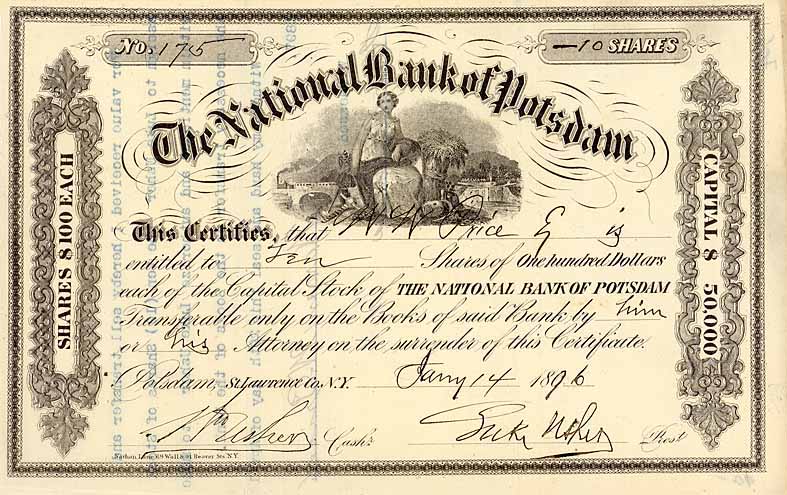 No. 175
10 SHARES
The National Bank of Potsdam
SHARES $100 EACH
CAPITAL $ 50,000
This Certifies, that W W Price Eq is
entitled to Ten Shares of One hundred Dollars
each of the Capital Stock of THE NATIONAL BANK OF POTSDAM
Transferable only on the Books of said Bank by him
or his Attorney on the surrender of this Certificate.
Potsdam, St. Lawrence Co. N.Y. Jany 14 1896
Wm Usher Cashr. Luke Usher Prest
Nathan Lane, 69 Wall & 91 Beaver Sts. N.Y.